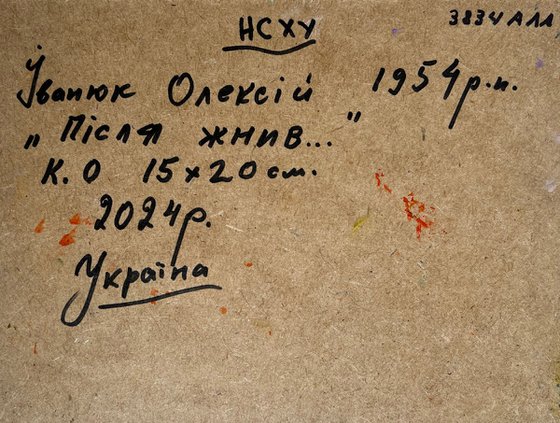 НСХУ
3834АЛА
Іванюк Олексій 1954р.н.
„Після жнив..."
К.О 15х20см.
2024р.
Україна